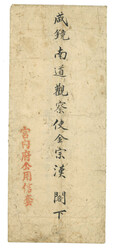 咸鏡南道觀察使金宗漢 閤下
宮內府公用信蕢